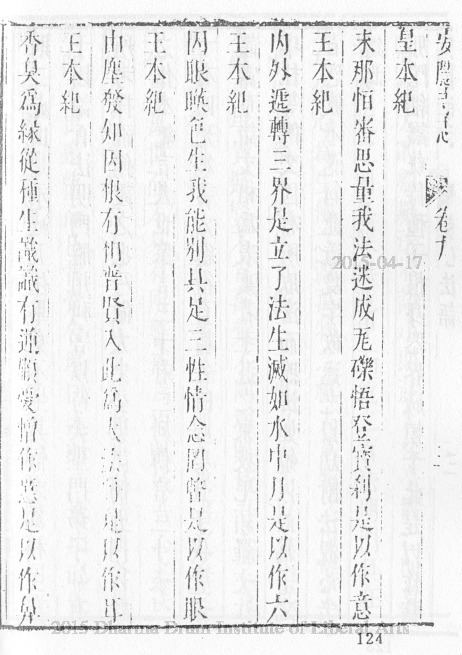 卷十
皇本紀
末那恒審思量我法迷成瓦礫悟登寶刹是以作意
王本紀
內外遞轉三界是立了法生滅如水中月是以作六
王本紀
因眼映色生我能別具足三性情念閒管是以作眼
王本紀
由塵發知因根有相普賢入此為大是以作耳
王本紀
香臭爲緣從種生識識有逆順愛憎作意是以作鼻
2015-04-17
2015 Dharma Drum Institute of Liberal Arts
124